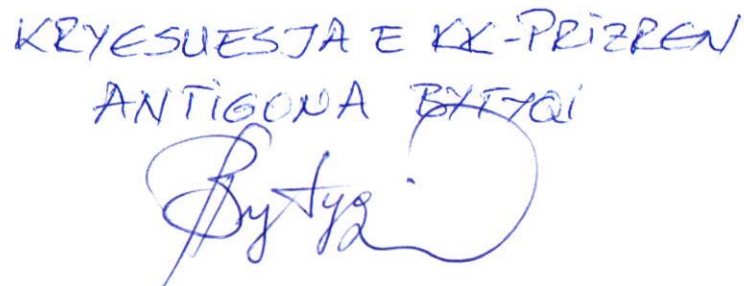 KRYESUESJA E KK-PRIZREN
ANTIGONA BYTYQI
Bytyqi